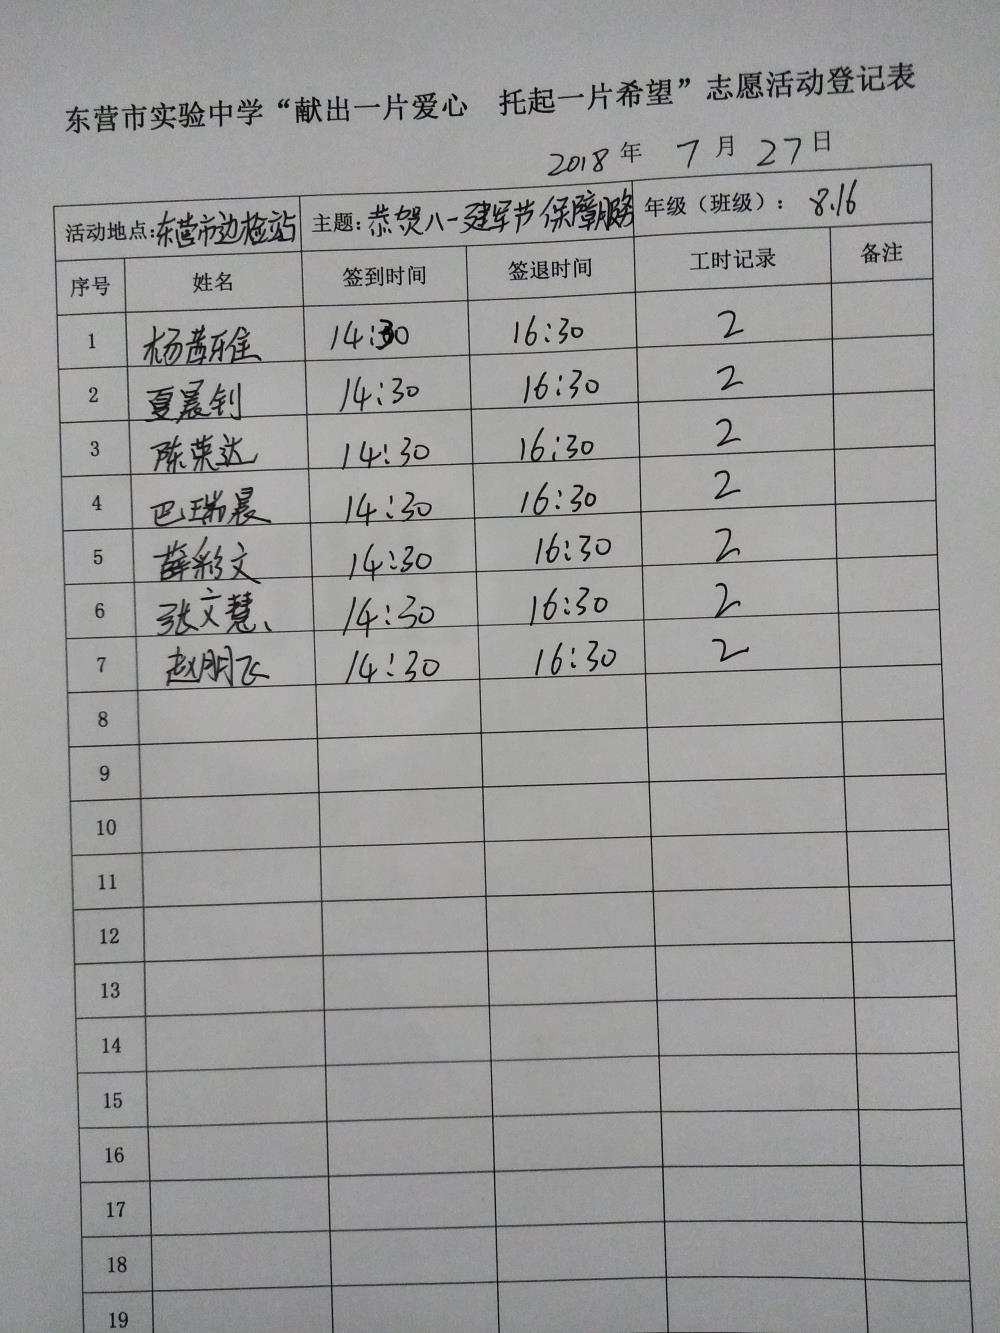 东营市实验中学“献出一片爱心 托起一片希望”志愿活动登记表
2018 年 7 月 27 日
活动地点:东营市边检站 主题:恭贺八一建军节保障服务 年级（班级）: 8.16
序号 姓名 签到时间 签退时间 工时记录 备注
1 杨茜雅 14:30 16:30 2
2 夏晨钊 14:30 16:30 2
3 陈荣达 14:30 16:30 2
4 巴瑞晨 14:30 16:30 2
5 薛彩文 14:30 16:30 2
6 张文慧、 14:30 16:30 2
7 赵朋飞 14:30 16:30 2
8
9
10
11
12
13
14
15
16
17
18
19